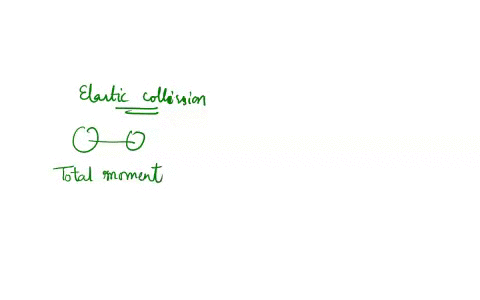 Elastic collission
Total moment